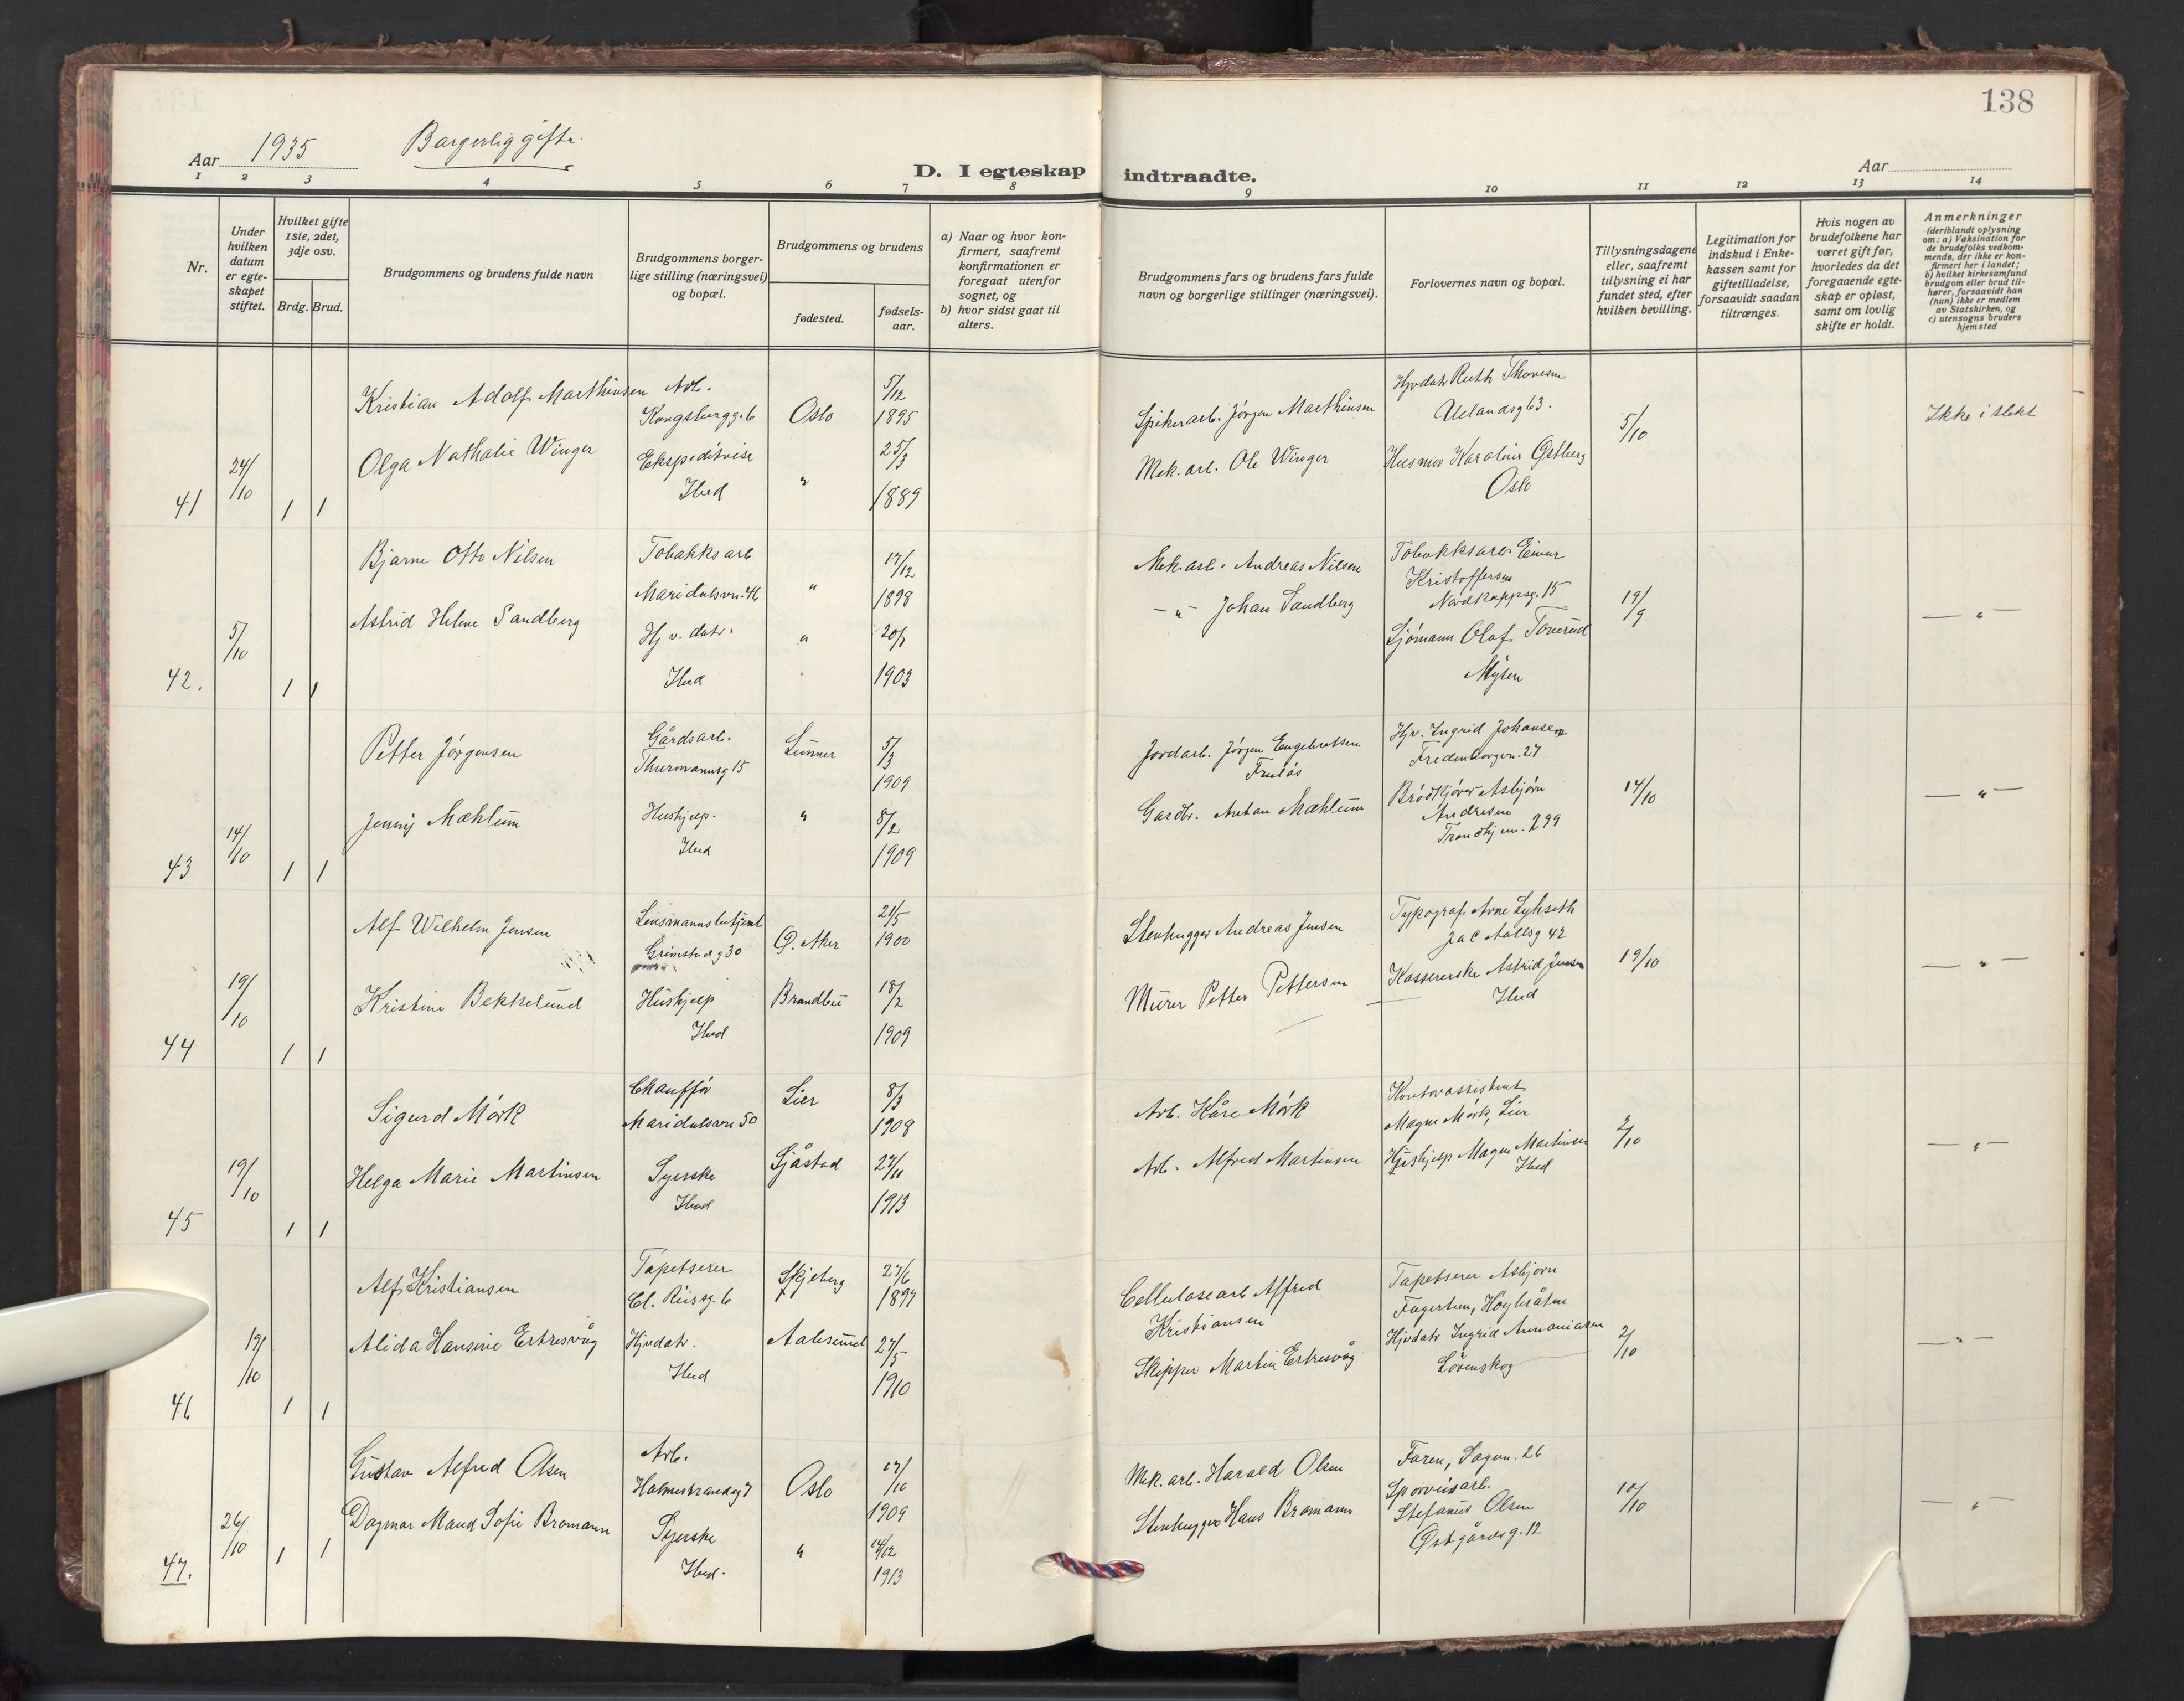 138
Aar 1935 Borgerlig gifte.
D. I egteskap indtraadte.
Aar
1 2 3 4 5 6 7 8 9 10 11 12 13 14
Nr.
Under hvilken datum er egteskapet stiftet.
Hvilket gifte 1ste, 2det, 3dje osv.
Brdg. Brud.
Brudgommens og brudens fulde navn
Brudgommens borgerlige stilling (næringsvei) og bopæl.
Brudgommens og brudens
fødested.
fødsels-aar.
a) Naar og hvor konfirmert, saafremt konfirmationen er foregaat utenfor sognet, og
b) hvor sidst gaat til alters.
Brudgommens fars og brudens fars fulde navn og borgerlige stillinger (næringsvei).
Forlovernes navn og bopæl.
Tillysningsdagene eller, saafremt tillysning ei har fundet sted, efter hvilken bevilling.
Legitimation for indskud i Enkekassen samt for giftetilladelse, forsaavidt saadan tiltrænges.
Hvis nogen av brudefolkene har været gift før, hvorledes da det foregaaende egteskap er opløst, samt om lovlig skifte er holdt.
Anmerkninger (deriblandt oplysning om: a) Vaksination for de brudefolks vedkommende, der ikke er konfirmert her i landet; b) hvilket kirkesamfund brudgom eller brud tilhører, forsaavidt han (hun) ikke er medlem av Statskirken, og c) utensogns bruders hjemsted
41 24/10 1 1
Kristian Adolf Marthinsen Arb. Kongsbergg. 6 Oslo 5/12 1895
Olga Nathalie Winger Ekspeditrise Ibid " 25/3 1889
Spikerarb. Jörgen Marthinsen
Mek. arb. Ole Winger
Hjvdatr Ruth Thoresen
Uelandsg 63.
Husmor Karoline Østberg
Oslo
5/10
Ikke i slekt
42. 5/10 1 1
Bjarne Otto Nilsen Tobakksarb Maridalsvn. 46 " 17/12 1898
Astrid Helene Sandberg Hj v. datr. Ibid " 1903
Mek. arb. Andreas Nilsen
-"- Johan Sandberg
Tobakksarb. Einar
Kristoffersen
Nordkappg. 15
Sjömann Olaf Toverud
Mysen
19/9
-"-
43 14/10 1 1
Petter Jörgensen Gårdsarb. Thurmannsg 15 Lunner 5/3 1909
Jenny Mæhlum Hushjelp. Ibid " 8/2 1909
Jordarb. Jörgen Engebretsen
Gardbr. Anton Mæhlum
Hjv. Ingrid Johansen
Fredensborgvn. 27
Brödkjörer Asbjörn
Andresen
Trondhj vn. 299
14/10
-"-
44 19/10 1 1
Alf Wilhelm Jensen Lensmannsbetjent Grimstadg 30 Ø. Aker 21/5 1900
Kristine Bekkelund Hushjelp Ibid Brandbu 18/2 1909
Stenhugger Andreas Jensen
Murer Petter Pettersen
Typograf Arne Lykseth
Jac Aallsg 42
Kassererske Astrid Jensen
Ibid
19/10
-"-
45 19/10 1 1
Sigurd Mörk Chaufför Maridalsvn 50 Lier 8/3 1908
Helga Marie Martinsen Syerske Ibid Sjåstad 27/11 1913
Arb. Kåre Mörk
Arb. Alfred Martinsen
Kontorassistent
Magne Mörk, Lier
Hushjelp Magne Martinsen
Ibid
2/10
-"-
46 19/10 1 1
Alf Kristiansen Tapetserer Cl. Riisg. 6 Skjeberg 27/6 1897
Alida Hansine Ertresvåg Hjvdatr. Ibid Aalesund 27/5 1910
Cellulosearb Alfred
Kristiansen
Skipper Martin Ertresvåg
Tapetserer Asbjörn
Fagertun, Höybråten
Hjvdatr Ingrid Ammaniasen
Lörenskog
2/10
-"-
47. 26/10 1 1
Gustav Alfred Olsen Arb. Holmestrandsg 7 Oslo 17/10 1909
Dagmar Maud Sofie Bromann Syerske Ibid. " 14/12 1913
Mek. arb. Harald Olsen
Stenhugger Hans Bromann
Faren, Sagvn. 26
Sporveisarb.
Stefanus Olsen
Østgårdsg. 12
10/10
-"-